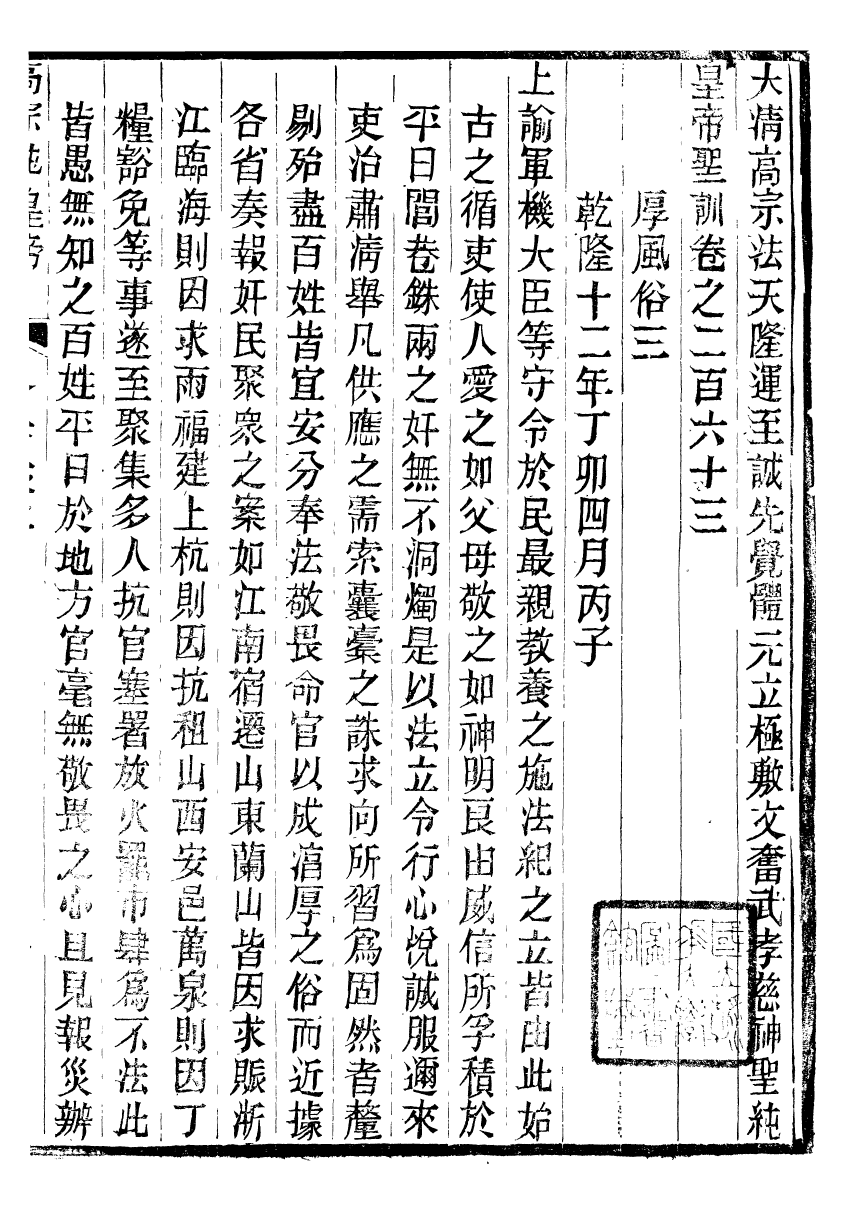 大清高宗法天隆運至誠先覺體元立極敷文奮武孝慈神聖純
皇帝聖訓卷之二百六十三
厚風俗三
乾隆十二年丁卯四月丙子
上諭軍機大臣等守令於民最親教養之施法紀之立皆由此始
古之循吏使人愛之如父母敬之如神明良由威信所孚積於
平日閭巷銖兩之奸無不洞燭是以法立令行心悅誠服邇來
吏治肅清舉凡供應之需索囊橐之誅求向所習爲固然者釐
剔殆盡百姓皆宜安分奉法敬畏命官以成湻厚之俗而近據
各省奏報奸民聚衆之案如江南宿遷山東蘭山皆因求賑浙
江臨海則因求雨福建上杭則因抗租山西安邑萬泉則因丁
糧豁免等事遂至聚集多人抗官塞署放火罷市肆爲不法此
皆愚無知之百姓平日於地方官毫無敬畏之心且見報災辦
高宗純皇帝